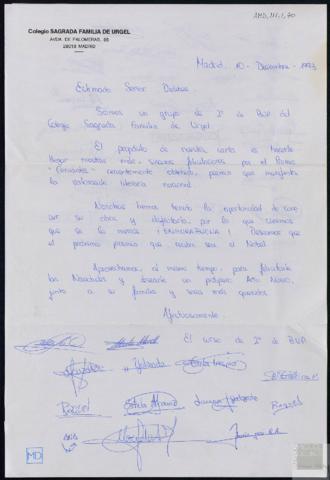 AMD, 111, 1, 70
Colegio SAGRADA FAMILIA DE URGEL
AVDA. DE PALOMERAS, 85
28018 MADRID
Madrid, 10 - Diciembre - 1993
Estimado Señor Delibes:
Somos un grupo de 1º de BUP del
Colegio Sagrada Familia de Urgel.
El propósito de nuestra carta es hacerle
llegar nuestras más sinceras felicitaciones por el Premio
"Cervantes" recientemente obtenido, premio que manifiesta
la literaria nacional.
Nosotros hemos tenido la oportunidad de cono
cer su obra y disfrutarla, por lo que creemos
que se lo merece ¡ ENHORABUENA ! Deseamos que
el próximo premio que reciba sea el Nobel.
Aprovechamos, al mismo tiempo, para felicitarle
las Navidades y desearle un próspero Año Nuevo,
junto a su familia y seres más queridos.
Afectuosamente.
El curso de 1º de BUP
Raquel
MD